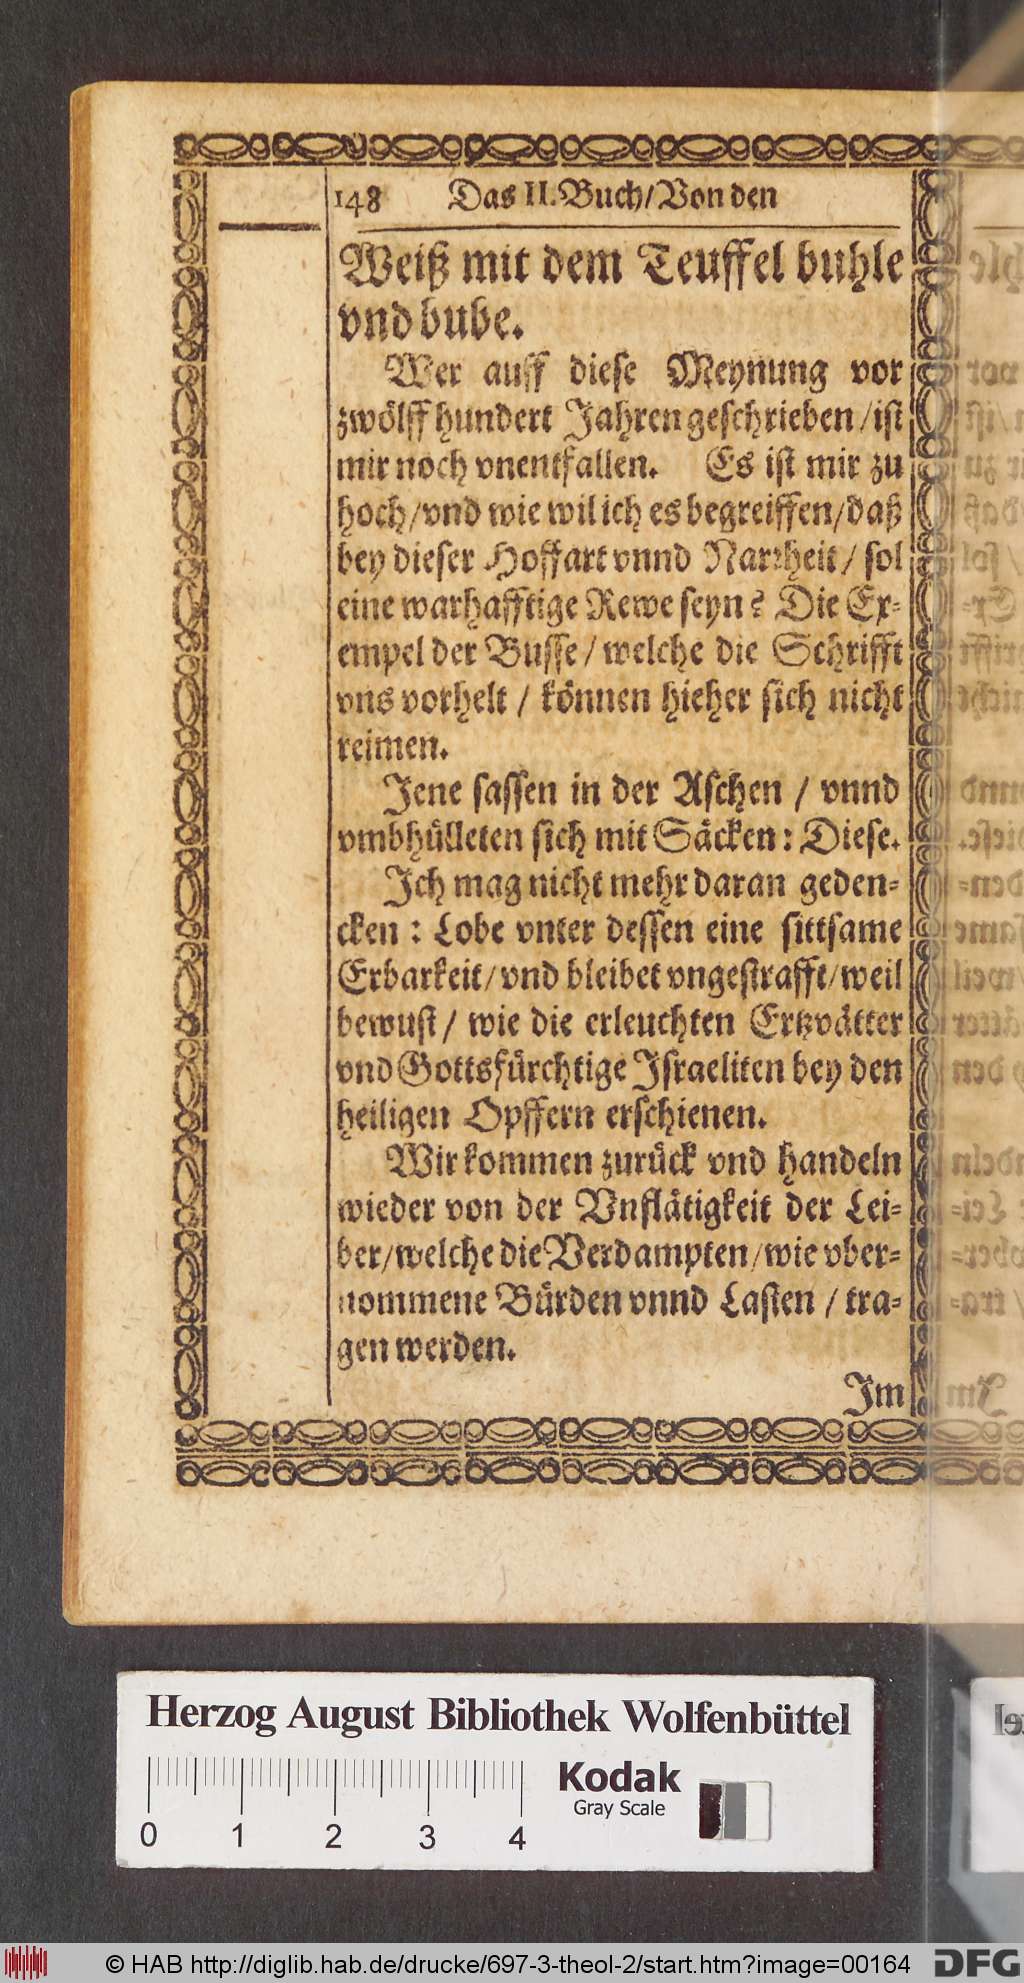 148 Das II. Buch/Von den
Weiß mit dem Teuffel buhle
vnd bube.
Wer auff diese Meynung vor
zwölff hundert Jahren geschrieben/ist
mir noch vnentfallen. Es ist mir zu
hoch/vnd wie wil ich es begreiffen/daß
bey dieser Hoffart vnnd Narrheit/ sol
eine warhafftige Rewe seyn? Die Ex-
empel der Busse/ welche die Schrifft
vns vorhelt / können hieher sich nicht
reimen.
Jene sassen in der Aschen / vnnd
vmbhülleten sich mit Säcken: Diese.
Ich mag nicht mehr daran geden-
cken: Lobe vnter dessen eine sittsame
Erbarkeit/ vnd bleibet vngestrafft/weil
bewust/ wie die erleuchten Ertzvätter
vnd Gottsfürchtige Israeliten bey den
heiligen Opffern erschienen.
Wir kommen zurück vnd handeln
wieder von der Vnflätigkeit der Lei-
ber/welche die Verdampten/wie vber-
nommene Bürden vnnd Lasten / tra-
gen werden.
Im
Herzog August Bibliothek Wolfenbüttel
Kodak
Gray Scale
0 1 2 3 4
© HAB http://diglib.hab.de/drucke/697-3-theol-2/start.htm?image=00164 DFG